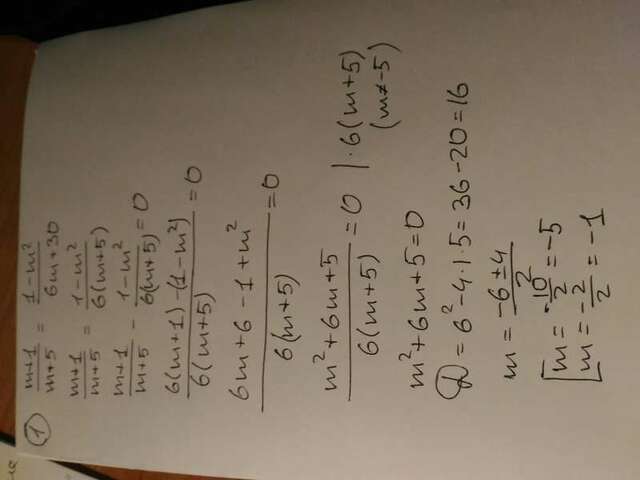 ①
m+1/m+5 = 1-m²/6m+30
m+1/m+5 = 1-m²/6(m+5)
m+1/m+5 - 1-m²/6(m+5) = 0
6(m+1)-(1-m²)/6(m+5) = 0
6m+6-1+m²/6(m+5) = 0
m²+6m+5/6(m+5) = 0 | ·6(m+5)
(m≠-5)
m²+6m+5=0
D = 6²-4·1·5 = 36-20=16
m = -6±4/2
[ m = -10/2 = -5
m = -2/2 = -1